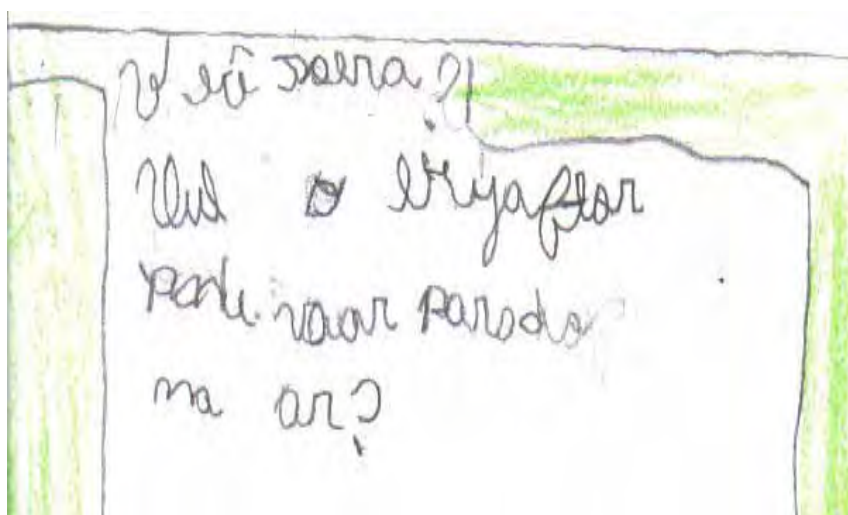 Você saera?
Que o beija flor
pode voar parado
na ar?